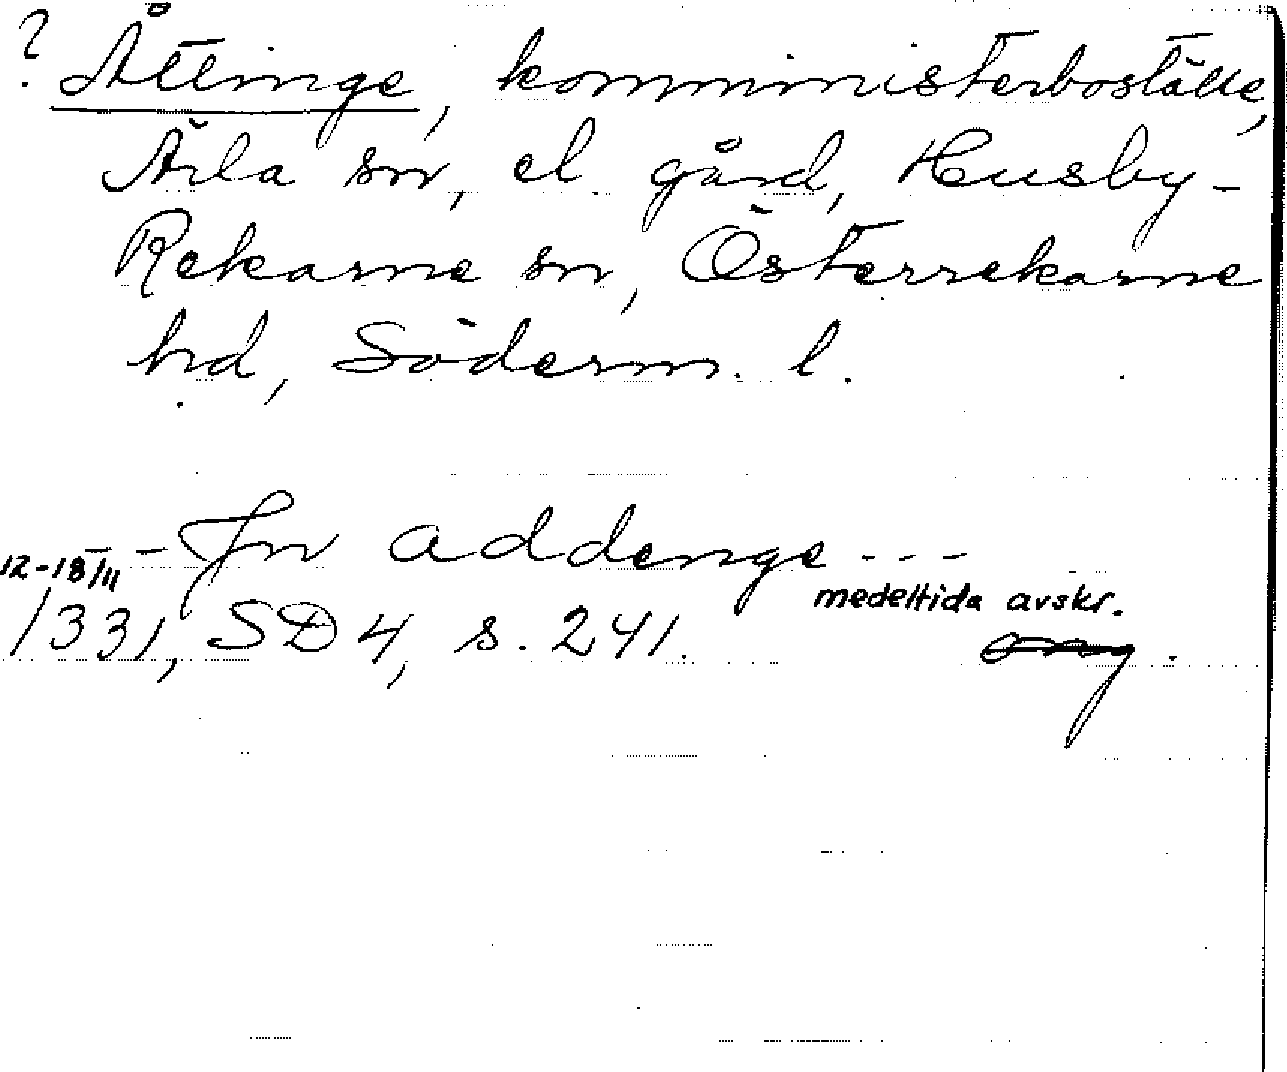 ? Åttinge, komministerboställe,
Ärla sn, el. gård, Husby-
Rekarne sn, Österrekarne
hd, Söderm. l.
- - Jn addenge - - -
12-18/11 medeltida avskr.
1331, SD 4, s. 241. .